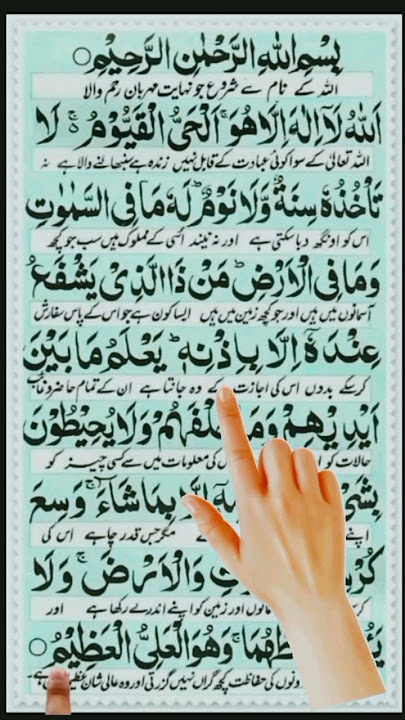 بِسْمِ اللهِ الرَّحْمٰنِ الرَّحِيْمِ
اللہ کے نام سے شروع جو نہایت مہربان رحم والا
اَللهُ لَاۤ اِلٰهَ اِلَّا هُوَ ۚ اَلْحَيُّ الْقَيُّوْمُ ۚ لَا
اللہ تعالیٰ کے سوا کوئی عبادت کے قابل نہیں زندہ ہے سنبھالنے والا ہے نہ
تَاْخُذُهٗ سِنَةٌ وَّلَا نَوْمٌ ؕ لَهٗ مَا فِي السَّمٰوٰتِ
اس کو اونگھ دباسکتی ہے اور نہ نیند اسی کے مملوک ہیں سب جو کچھ
وَمَا فِي الْاَرْضِ ؕ مَنْ ذَا الَّذِيْ يَشْفَعُ
آسمانوں میں ہیں اور جو کچھ زمین میں ہیں ایسا کون ہے جو اس کے پاس سفارش
عِنْدَهٗۤ اِلَّا بِاِذْنِهٖ ؕ يَعْلَمُ مَا بَيْنَ
کرسکے بدوں اس کی اجازت کے وہ جانتا ہے ان کے تمام حاضر و غائب
اَيْدِيْهِمْ وَمَا خَلْفَهُمْ ۚ وَلَا يُحِيْطُوْنَ
حالات کو کی معلومات میں سے کسی چیز کو
بِشَيْ اِلَّا بِمَا شَآءَ ۚ وَسِعَ
اپنے مگر جس قدر چاہے اس کی
وَالْاَرْضَ ۚ وَلَا
اور زمین کو اپنے اندر لے رکھا ہے اور
وَهُوَ الْعَلِيُّ الْعَظِيْمُ
کی حفاظت کچھ گراں نہیں گزرتی اور وہ عالی شان